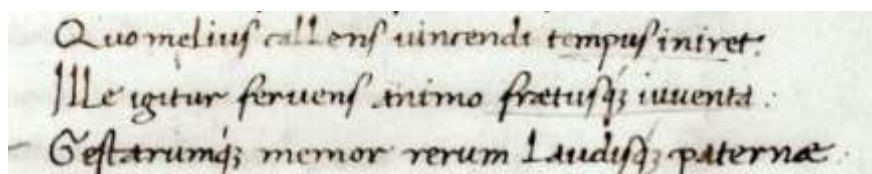 Quo melius callens uincendi tempus iniret:
Ille igitur feruens animo frætusq; iuuenta.
Gestarumq; memor rerum Laudisq; paternæ.